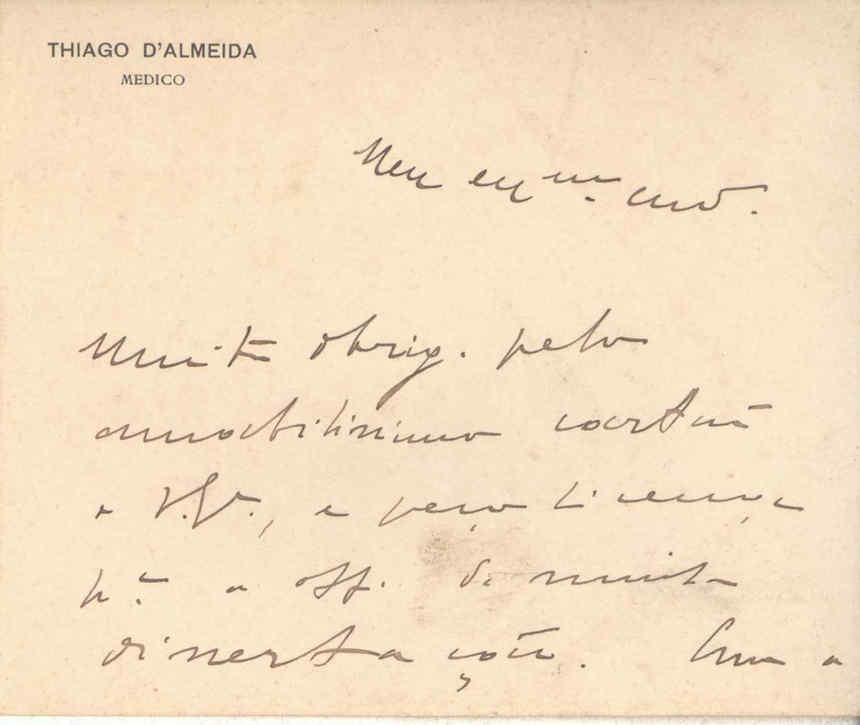 THIAGO D'ALMEIDA
MEDICO
Meu exmo. amo.
Muito obrig. pelo
amabilissimo cartão
a V. E., e peço licença
pa. a off. da minha
dissertação. Com a